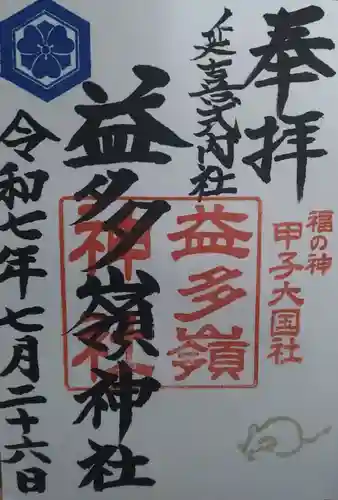 奉拝
延喜式内社
福の神
甲子大国社
益多嶺
神社
益多嶺神社
令和七年七月二十六日